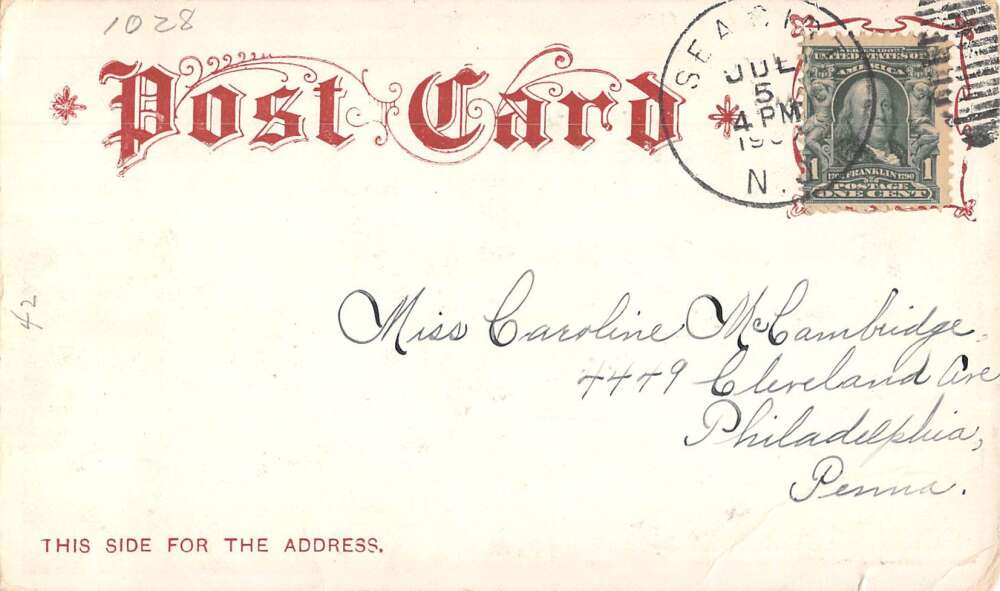 1028
Post Card
SEA
JUL
5
4 PM
190
N.
SERIES 1902
UNITED STATES OF
AMERICA
1 1
1706 FRANKLIN 1790
POSTAGE
ONE CENT
42
Miss Caroline McCambridge
4479 Cleveland Ave
Philadelphia,
Penna.
THIS SIDE FOR THE ADDRESS.